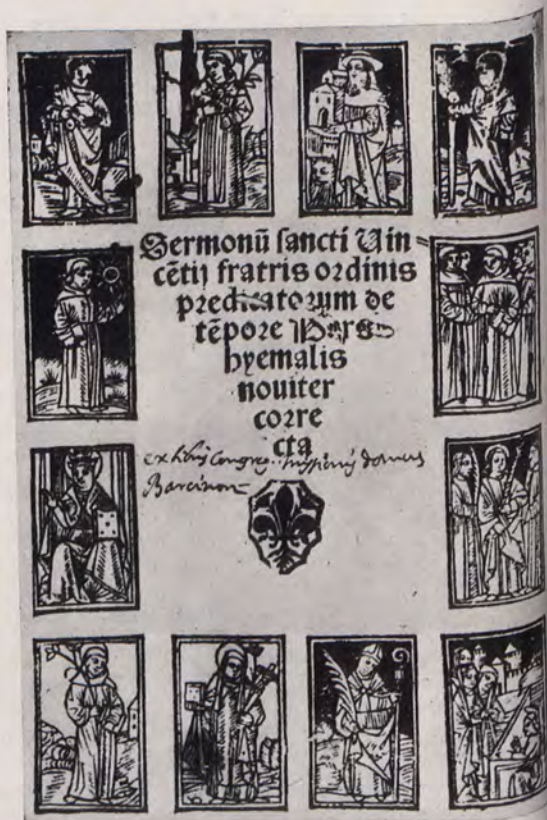 Sermonũ sancti Uin=
cẽtij fratris ordinis
predicatorum de
tẽpore Pars
hyemalis
nouiter
corre
cta
ex libris Congreg. Missionis domus
Barcinon